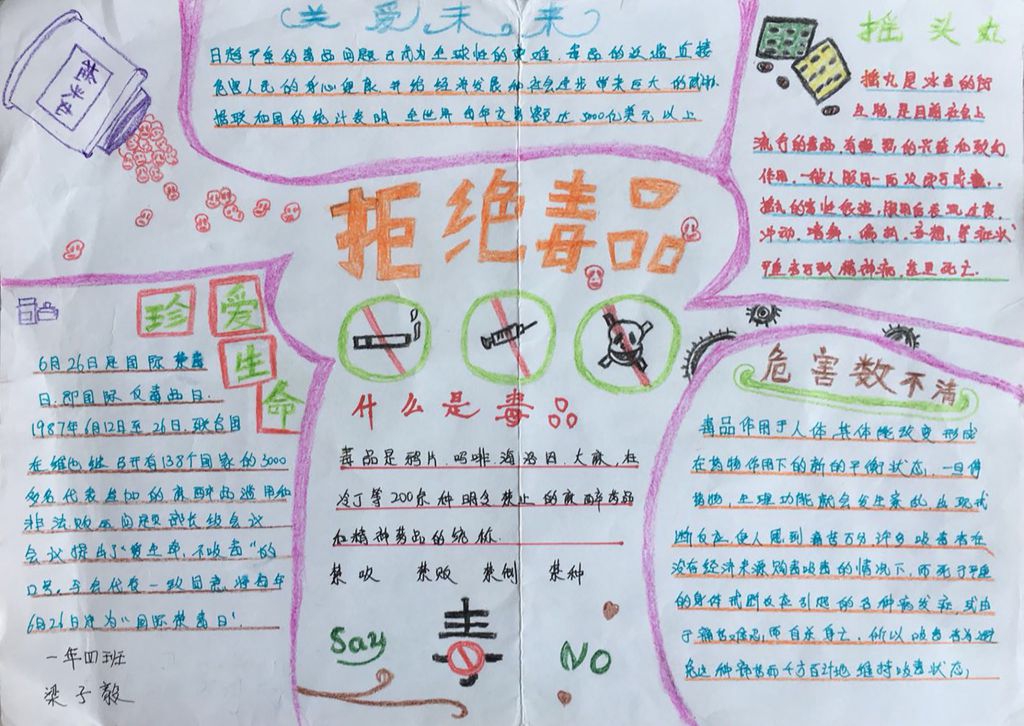 关爱未来
日趋严重的毒品问题已成为全球性的灾难，毒品的泛滥直接
危害人民的身心健康，并给经济发展和社会进步带来巨大的威胁
据联合国的统计表明，全世界每年交易额达5000亿美元以上
摇头丸
摇头丸
摇丸是冰毒的衍
生物，是目前社会上
流行的毒品，有强烈的兴奋和致幻
作用，一般人服用一两次即可成瘾，
摇丸的毒性很强，服用后表现过度
冲动，嗜舞，偏执，妄想，等症状
严重者可致精神病，甚至死亡.
拒绝毒品
珍爱生命
6月26日是国际禁毒
日，即国际反毒品日
1987年6月12日至26日，联合国
在维也纳召开有138个国家的3000
多名代表参加的麻醉品滥用和
非法贩运问题部长级会议
会议提出了"爱生命，不吸毒"的
口号，与会代表一致同意，将每年
6月26日定为"国际禁毒日"
一年四班
梁子毅
什么是毒品
毒品是鸦片，吗啡海洛因 大麻，杜
冷丁等200余种明令禁止的麻醉药品
和精神药品的统称.
禁吸 禁贩 禁制 禁种
Say
毒
NO
危害数不清
毒品作用于人体，其体能改变 形成
在药物作用下的新的平衡状态，一旦停
药物，生理功能就会发生紊乱，出现戒
断反应，使人感到痛苦万分，许多吸毒者在
没有经济来源购毒吸毒的情况下，而死于严重
的身体戒断反应引起的各种病发症，或由
于痛苦难忍，而自杀身亡，所以吸毒者为避
免这种痛苦而千方百计地维持吸毒状态，